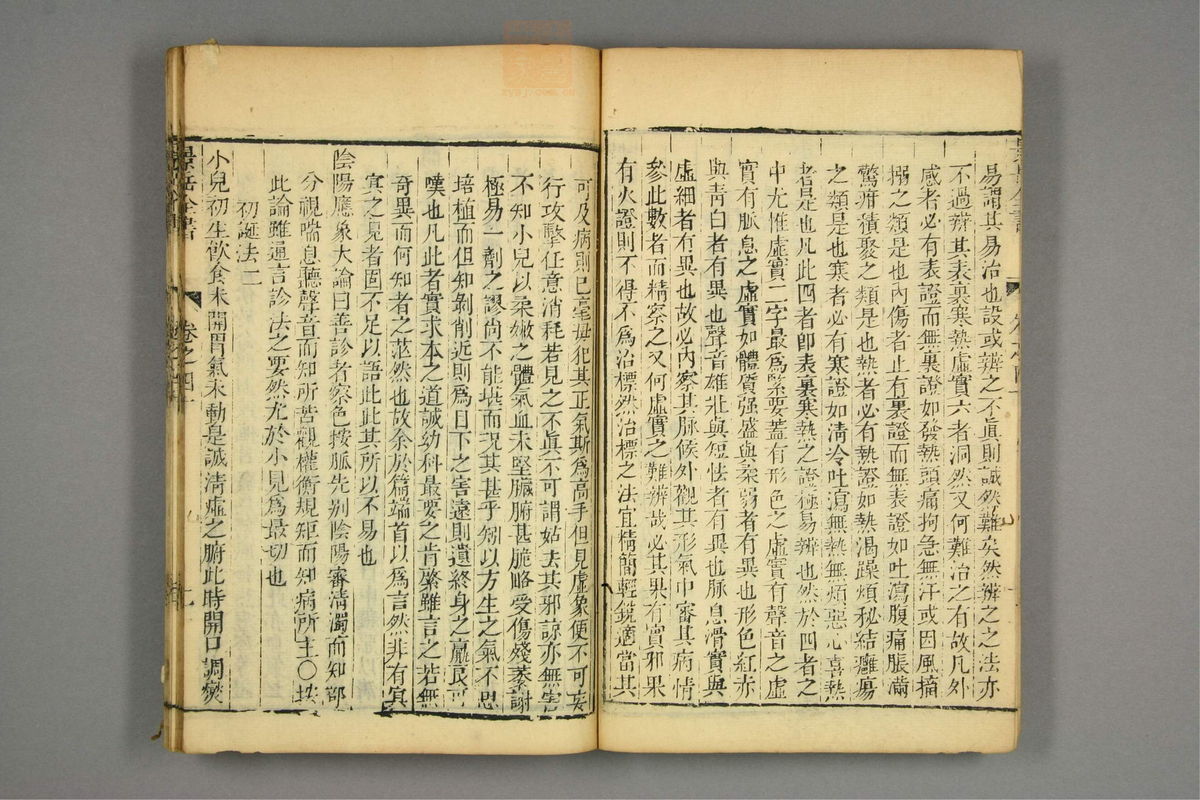 易謂其易治也設或辨之不眞則誠然難矣然辨之之法亦
不過辨其表裏寒熱虛實六者洞然又何難治之有故凡外
感者必有表證而無裏證如發熱頭痛拘急無汗或因風搐
搦之類是也內傷者止有裏證而無表證如吐瀉腹痛脹滿
驚疳積聚之類是也熱者必有熱證如熱渴躁煩秘結癰瘍
之類是也寒者必有寒證如淸冷吐瀉無熱無煩惡心喜熱
者是也凡此四者卽表裏寒熱之證極易辨也然於四者之
中尤惟虛實二字最爲緊要蓋有形色之虛實有聲音之虛
實有脈息之虛實如體質强盛與柔弱者有異也形色紅赤
與靑白者有異也聲音雄壯與短怯者有異也脈息滑實與
虛細者有異也故必內察其脈候外觀其形氣中審其病情
參此數者而精察之又何虛實之難辨哉必其果有實邪果
有火證則不得不爲治標然治標之法宜精簡輕銳適當其
可及病則已毫毋犯其正氣斯爲高手但見虛象便不可妄
行攻擊任意消耗若見之不眞不可謂姑去其邪諒亦無害
不知小兒以柔嫩之體氣血未堅臟腑甚脆略受傷殘萎謝
極易一劑之謬尚不能堪而况其甚乎矧以方生之氣不思
培植而但知剝削近則爲目下之害遠則遺終身之羸良可
嘆也凡此者實求本之道誠幼科最要之肯綮雖言之若無
奇異而何知者之茫然也故余於篇端首以爲言然非有冥
冥之見者固不足以語此此其所以不易也
陰陽應象大論曰善診者察色按脈先別陰陽審淸濁而知部
分視喘息聽聲音而知所苦觀權衡規矩而知病所主○按
此論雖通言診法之要然尤於小兒爲最切也
初誕法二
小兒初生飮食未開胃氣未動是誠淸虛之腑此時開口調燮
景岳全書
卷之四十一